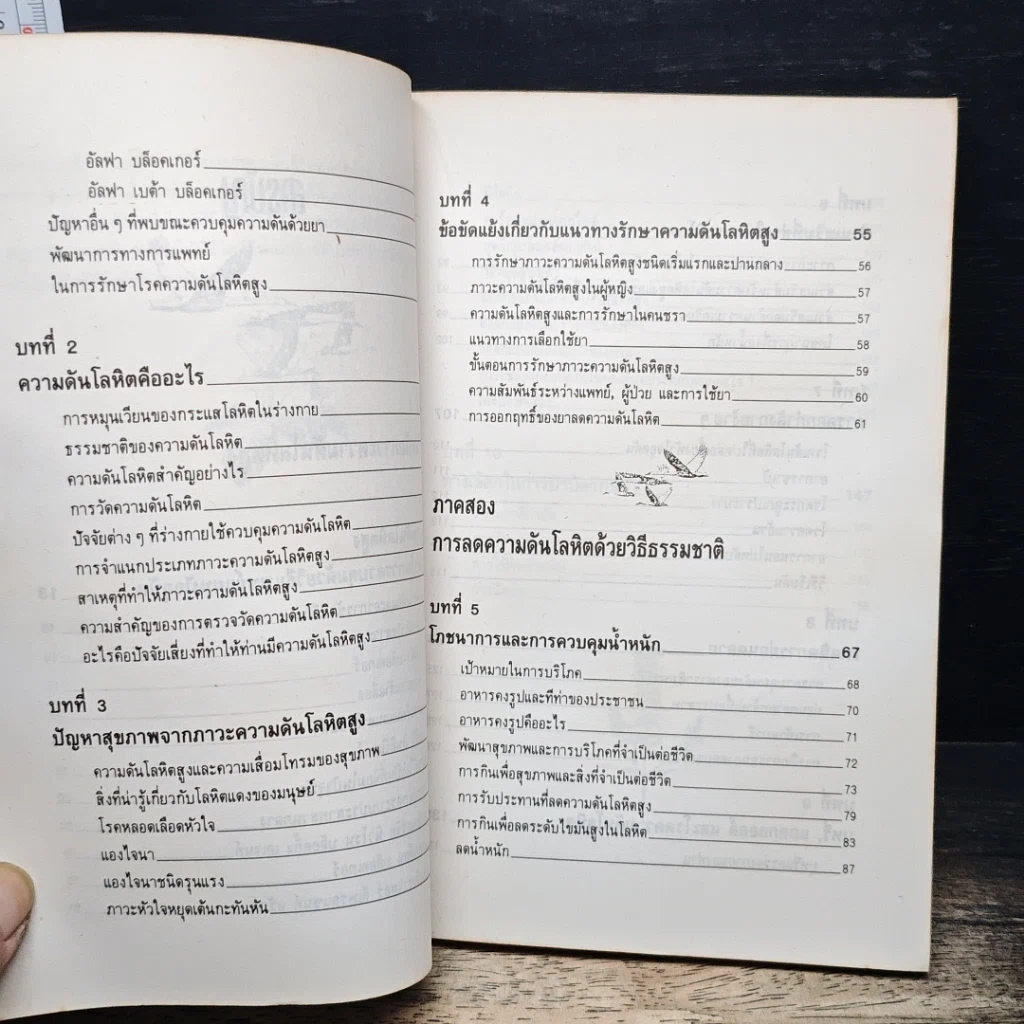 อัลฟา บล็อคเกอร์
อัลฟา เบต้า บล็อคเกอร์
ปัญหาอื่น ๆ ที่พบขณะควบคุมความดันด้วยยา
พัฒนาการทางการแพทย์
ในการรักษาโรคความดันโลหิตสูง
บทที่ 2
ความดันโลหิตคืออะไร
การหมุนเวียนของกระแสโลหิตในร่างกาย
ธรรมชาติของความดันโลหิต
ความดันโลหิตสำคัญอย่างไร
การวัดความดันโลหิต
ปัจจัยต่าง ๆ ที่ร่างกายใช้ควบคุมความดันโลหิต
การจำแนกประเภทภาวะความดันโลหิตสูง
สาเหตุที่ทำให้ภาวะความดันโลหิตสูง
ความสำคัญของการตรวจวัดความดันโลหิต
อะไรคือปัจจัยเสี่ยงที่ทำให้ท่านมีความดันโลหิตสูง
บทที่ 3
ปัญหาสุขภาพจากภาวะความดันโลหิตสูง
ความดันโลหิตสูงและความเสื่อมโทรมของสุขภาพ
สิ่งที่น่ารู้เกี่ยวกับโลหิตแดงของมนุษย์
โรคหลอดเลือดหัวใจ
แองไจนา
แองไจนาชนิดรุนแรง
ภาวะหัวใจหยุดเต้นกะทันหัน
บทที่ 4
ข้อขัดแย้งเกี่ยวกับแนวทางรักษาความดันโลหิตสูง 55
การรักษาภาวะความดันโลหิตสูงชนิดเริ่มแรกและปานกลาง 56
ภาวะความดันโลหิตสูงในผู้หญิง 57
ความดันโลหิตสูงและการรักษาในคนชรา 57
แนวทางการเลือกใช้ยา 58
ขั้นตอนการรักษาภาวะความดันโลหิตสูง 59
ความสัมพันธ์ระหว่างแพทย์, ผู้ป่วย และการใช้ยา 60
การออกฤทธิ์ของยาลดความดันโลหิต 61
ภาคสอง
การลดความดันโลหิตด้วยวิธีธรรมชาติ
บทที่ 5
โภชนาการและการควบคุมน้ำหนัก 67
เป้าหมายในการบริโภค 68
อาหารคงรูปและทีท่าของประชาชน 70
อาหารคงรูปคืออะไร 71
พัฒนาสุขภาพและการบริโภคที่จำเป็นต่อชีวิต 72
การกินเพื่อสุขภาพและสิ่งที่จำเป็นต่อชีวิต 73
การรับประทานที่ลดความดันโลหิตสูง 79
การกินเพื่อลดระดับไขมันสูงในโลหิต 83
ลดน้ำหนัก 87